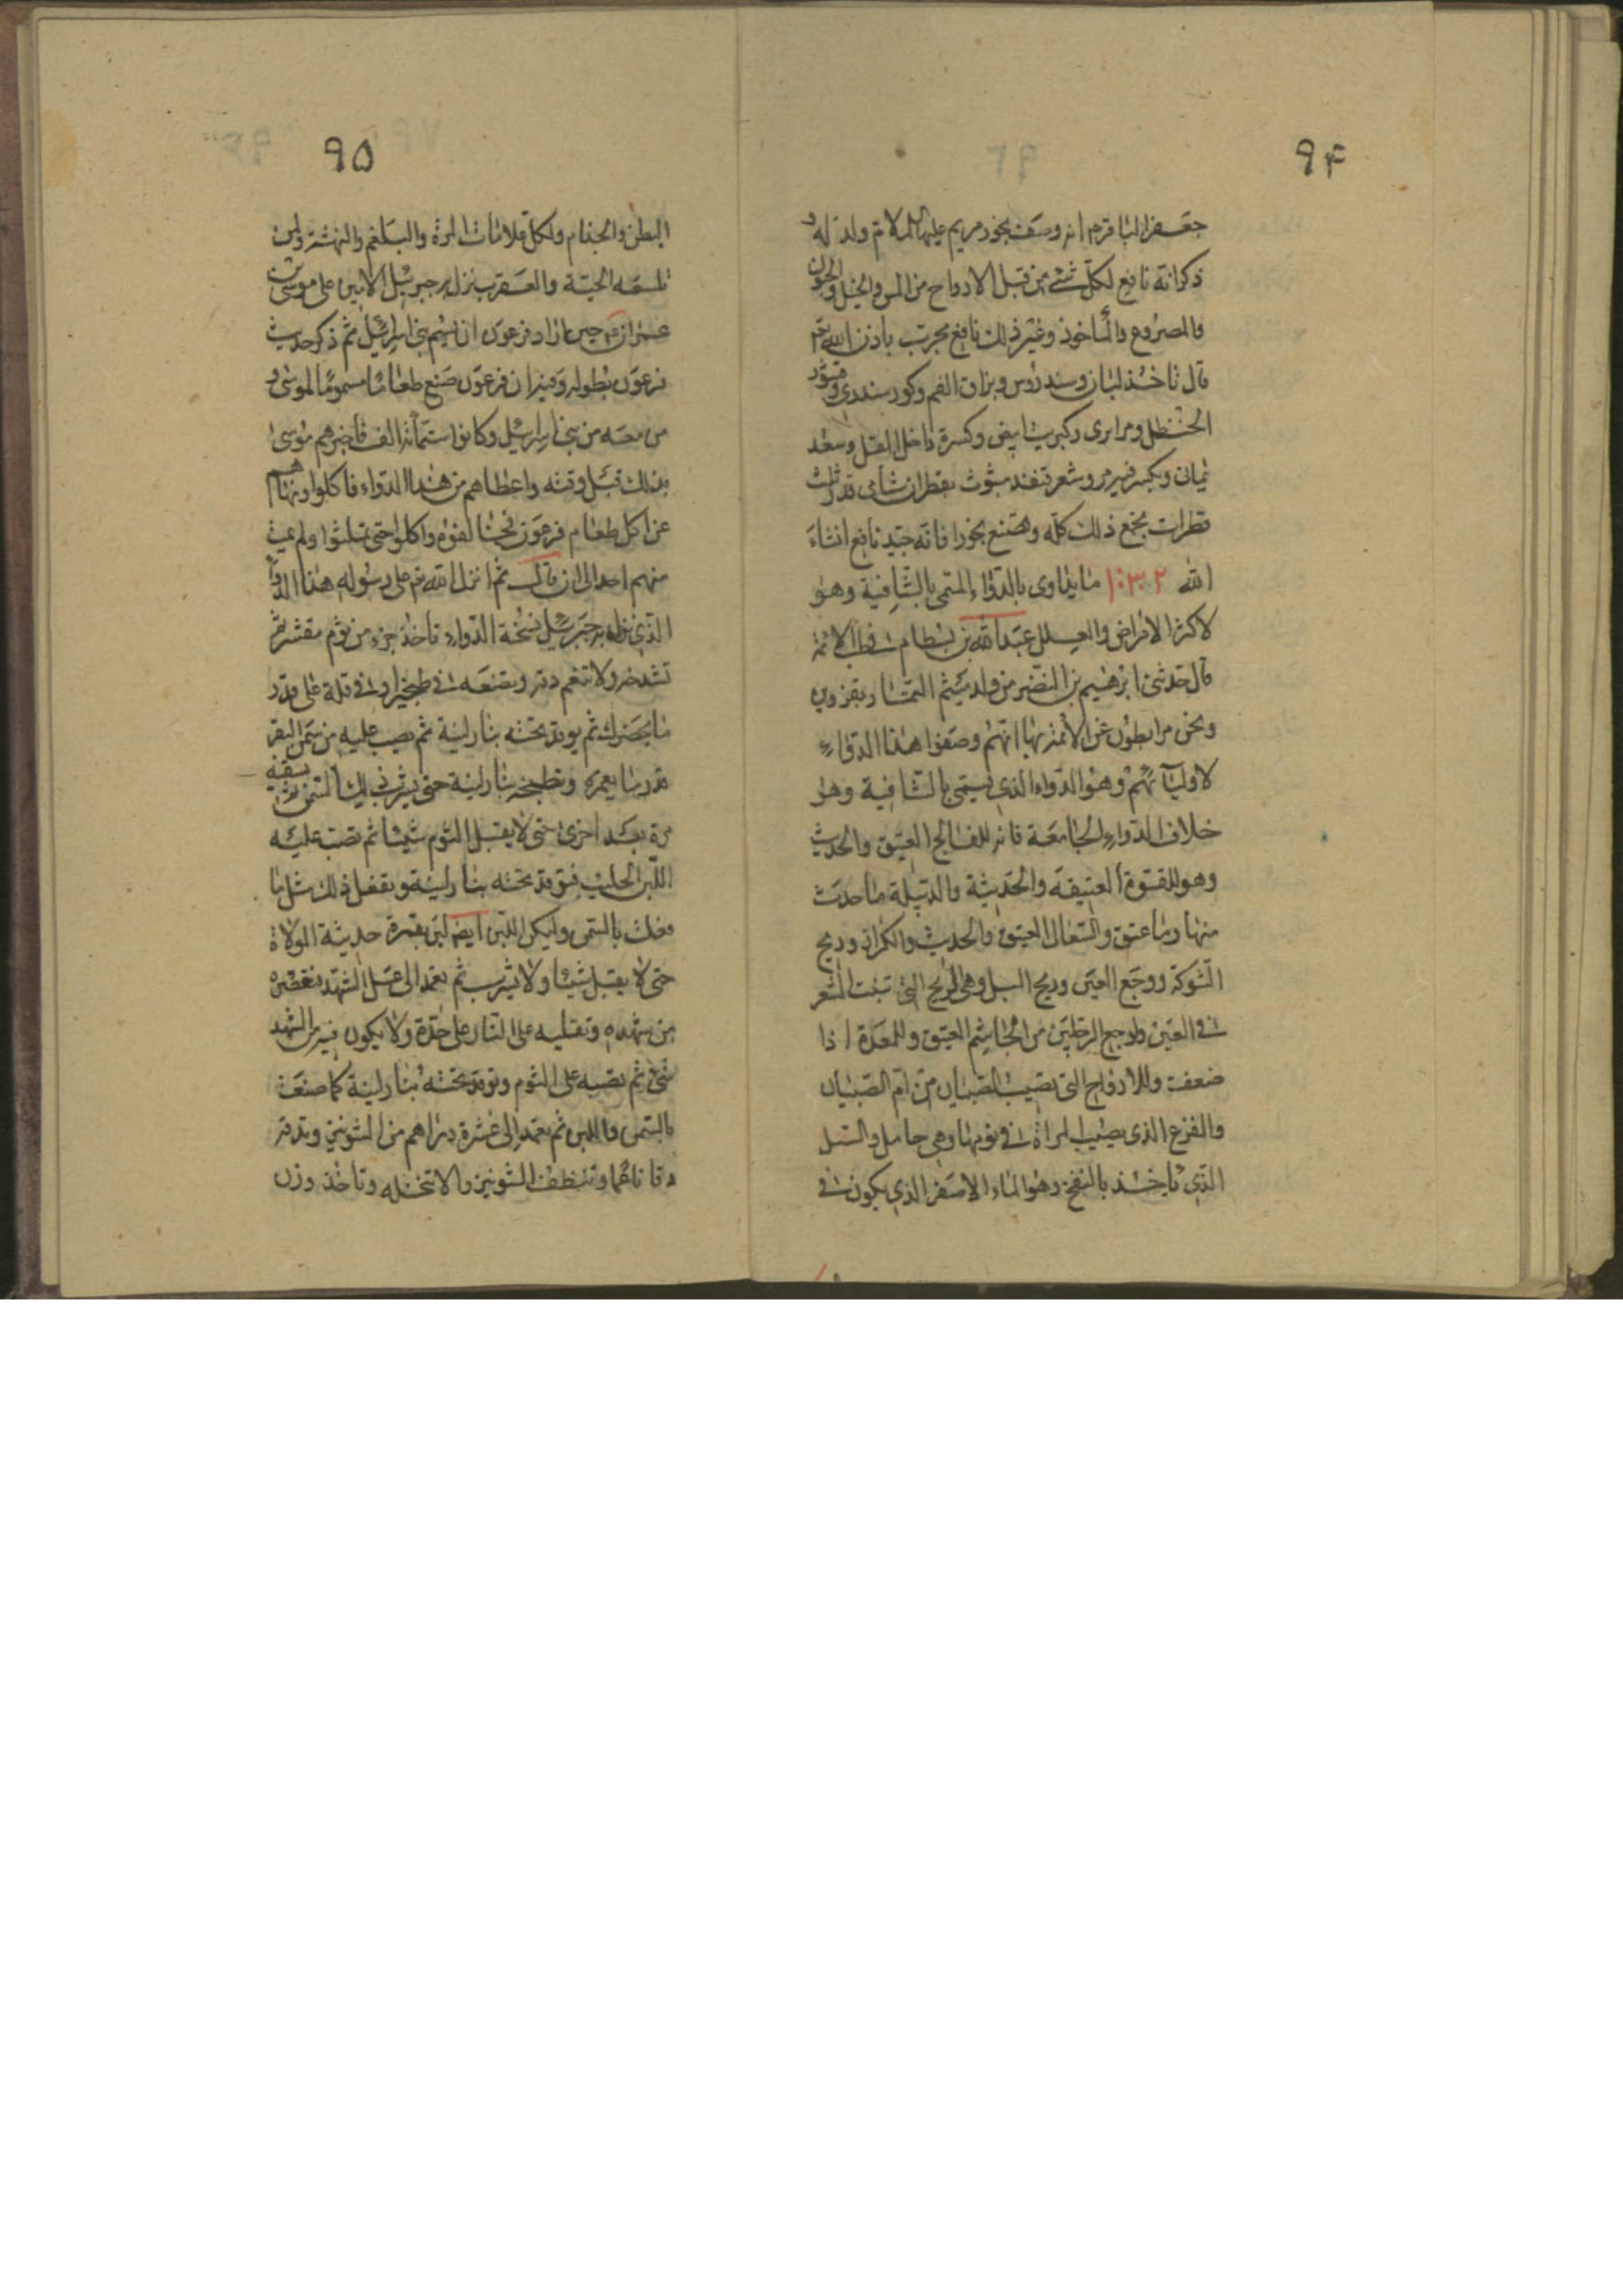 ٩۴
جعفر الباقر م انه وصف بخور مريم عليها السلام ولد له و
ذكر انه نافع لكل شئ من قبل الارواح من المس والخبل والجنون
والمصروع والمأخوذ وغير ذلك نافع مجرب باذن الله تع
قال تاخذ لبان وسندروس وبزاق الفم وكور سندى وقشور
الحنظل ومرابرى وكبريت ابيض وكسرة داخل المقل وسعد
يمان ويكسر فيه مر وشعر قنفذ مبثوث بقطران شامى قدر ثلث
قطرات يجمع ذلك كله وتصنع بخورا فانه جيد نافع انشاء
الله ١٠٣٠٢ ما يداوى بالدواء المسمى بالشافية وهو
لاكثر الامراض والعلل عبد الله بن بسطام فى طب الائمة
قال حدثنى ابرهيم بن النضر من ولد ميثم التمار بقزوين
ونحن مرابطون عن الائمة بها انهم وصفوا هذا الدواء
لاوليائهم وهو الدواء الذى يسمى بالشافية وهو
خلاف الدواء الجامعة فانه للفالج العتيق والحديث
وهو للقوة العتيقة والحديثة والدبيلة ما حدث
منها وما عتق والسعال العتيق والحديث والكزاز وريح
الشوكة ووجع العين وريح السبل وهى الريح التى تنبت الشعر
فى العين ولوجع الرجلين من الخام العتيق وللمعدة اذا
ضعفت وللارواح التى تصيب الصبيان من ام الصبيان
والفزع الذى يصيب المراة فى نومها وهى حامل والسل
الذى ياخذ بالنفخ وهو الماء الاصفر الذى يكون فى
٩۵
البطن والجذام ولكل علامات المرة والبلغم والنهشة ولمن
تلسعه الحية والعقرب نزل به جبرئيل الامين على موسى بن
عمران ع حين اراد فرعون ان يسم بنى اسرائيل ثم ذكر حديث
فرعون بطوله وفيه ان فرعون صنع طعاما مسموما لموسى و
من معه من بنى اسرائيل وكانوا ستمائة الف فاخبرهم موسى
بذلك قبل وقته واعطاهم من هذا الدواء فاكلوا ونهاهم
عن اكل طعام فرعون القوم واكلوا حتى تملئوا ولم يمت
منهم احد الى ان قال ثم انزل الله تع على رسوله هذا الدواء
الذى نزل به جبرئيل نسخة الدواء تاخذ جزء من ثوم مقشر ثم
تشدخه ولا تنعم دقه وتضعه فى طنجير او فى قدر على قدر
ما يحضرك ثم يوقد تحته بنار لينة ثم يصب عليه من سمن البقر
قدر ما يغمره وتطبخه بنار لينة حتى يشرب ذلك السمن ثم تسقيه
مرة بعد اخرى حتى لا يقبل الثوم شيئا ثم تصب عليه
اللبن الحليب فتوقد تحته بنار لينة وتفعل ذلك مثل ما
فعلت بالسمن وليكن اللبن ايضا لبن بقرة حديثة الولادة
حتى لا يقبل شيئا ولا يشرب ثم تعمد الى عسل الشهد فتعصره
من شهده وتغليه على النار على حدة ولا يكون فيه من الشهد
شئ ثم تصبه على الثوم وتوقد تحته بنار لينة كما صنعت
بالسمن واللبن ثم تعمد الى عشرة دراهم من الشونيز وتدقه
دقا ناعما وتنظف الشونيز ولا تنخله وتاخذ وزن